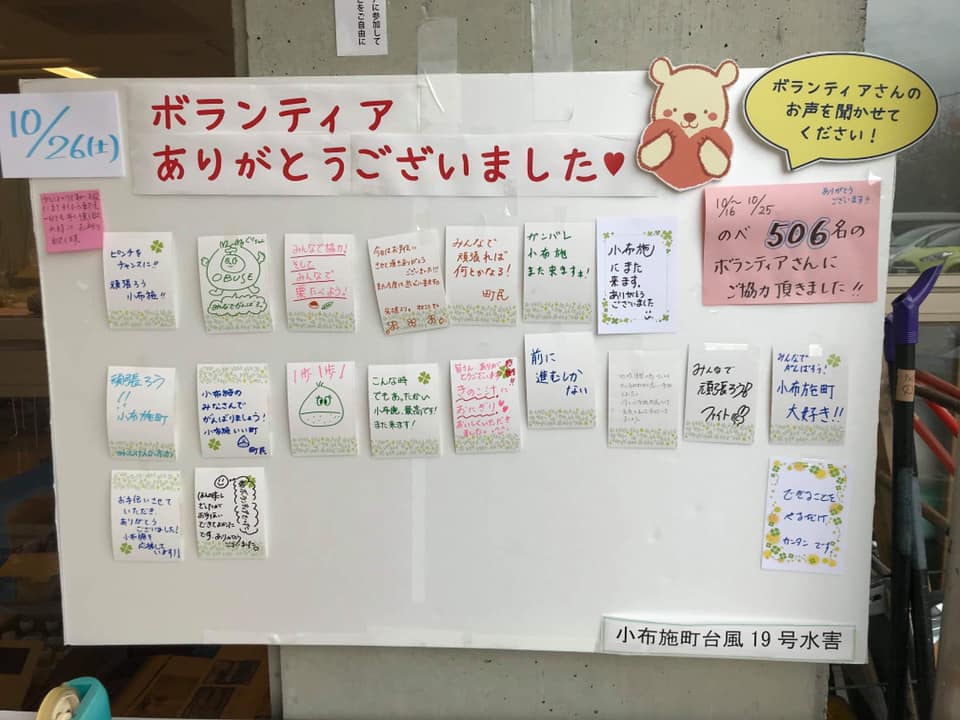 に参加して
をご自由に
10/26(土)
ボランティア
ありがとうございました♥
ボランティアさんの
お声を聞かせて
ください!
10/16〜10/25
ありがとう
ございます!!
のべ506名の
ボランティアさんに
ご協力頂きました!!
ピンチを
チャンスに!!
頑張ろう
小布施!!
OBUSE
みんなで協力!
そして
みんなで
栗たべよう!
みんなで
頑張れば
何とかなる!
町民
ガンバレ
小布施
また来ます!
小布施
にまた
来ます。
ありがとう
ございました
頑張ろう
!!
小布施町
小布施の
みなさんで
がんばりましょう!
小布施いい町
町民
1歩1歩!
こんな時
でもあったかい
小布施、最高です!
また来ます!
皆さんありがとうございます
きのこ汁に
おにぎり
おいしくいただき
ました
前に
進むしか
ない
みんなで
頑張ろう
ファイト
みんなで
がんばろう!
小布施町
大好き!!
お手伝いさせて
いただき、
ありがとう
ございました!
小布施を
応援して
います!!
できることを
やるだけ。
カンタンです。
小布施町台風19号水害